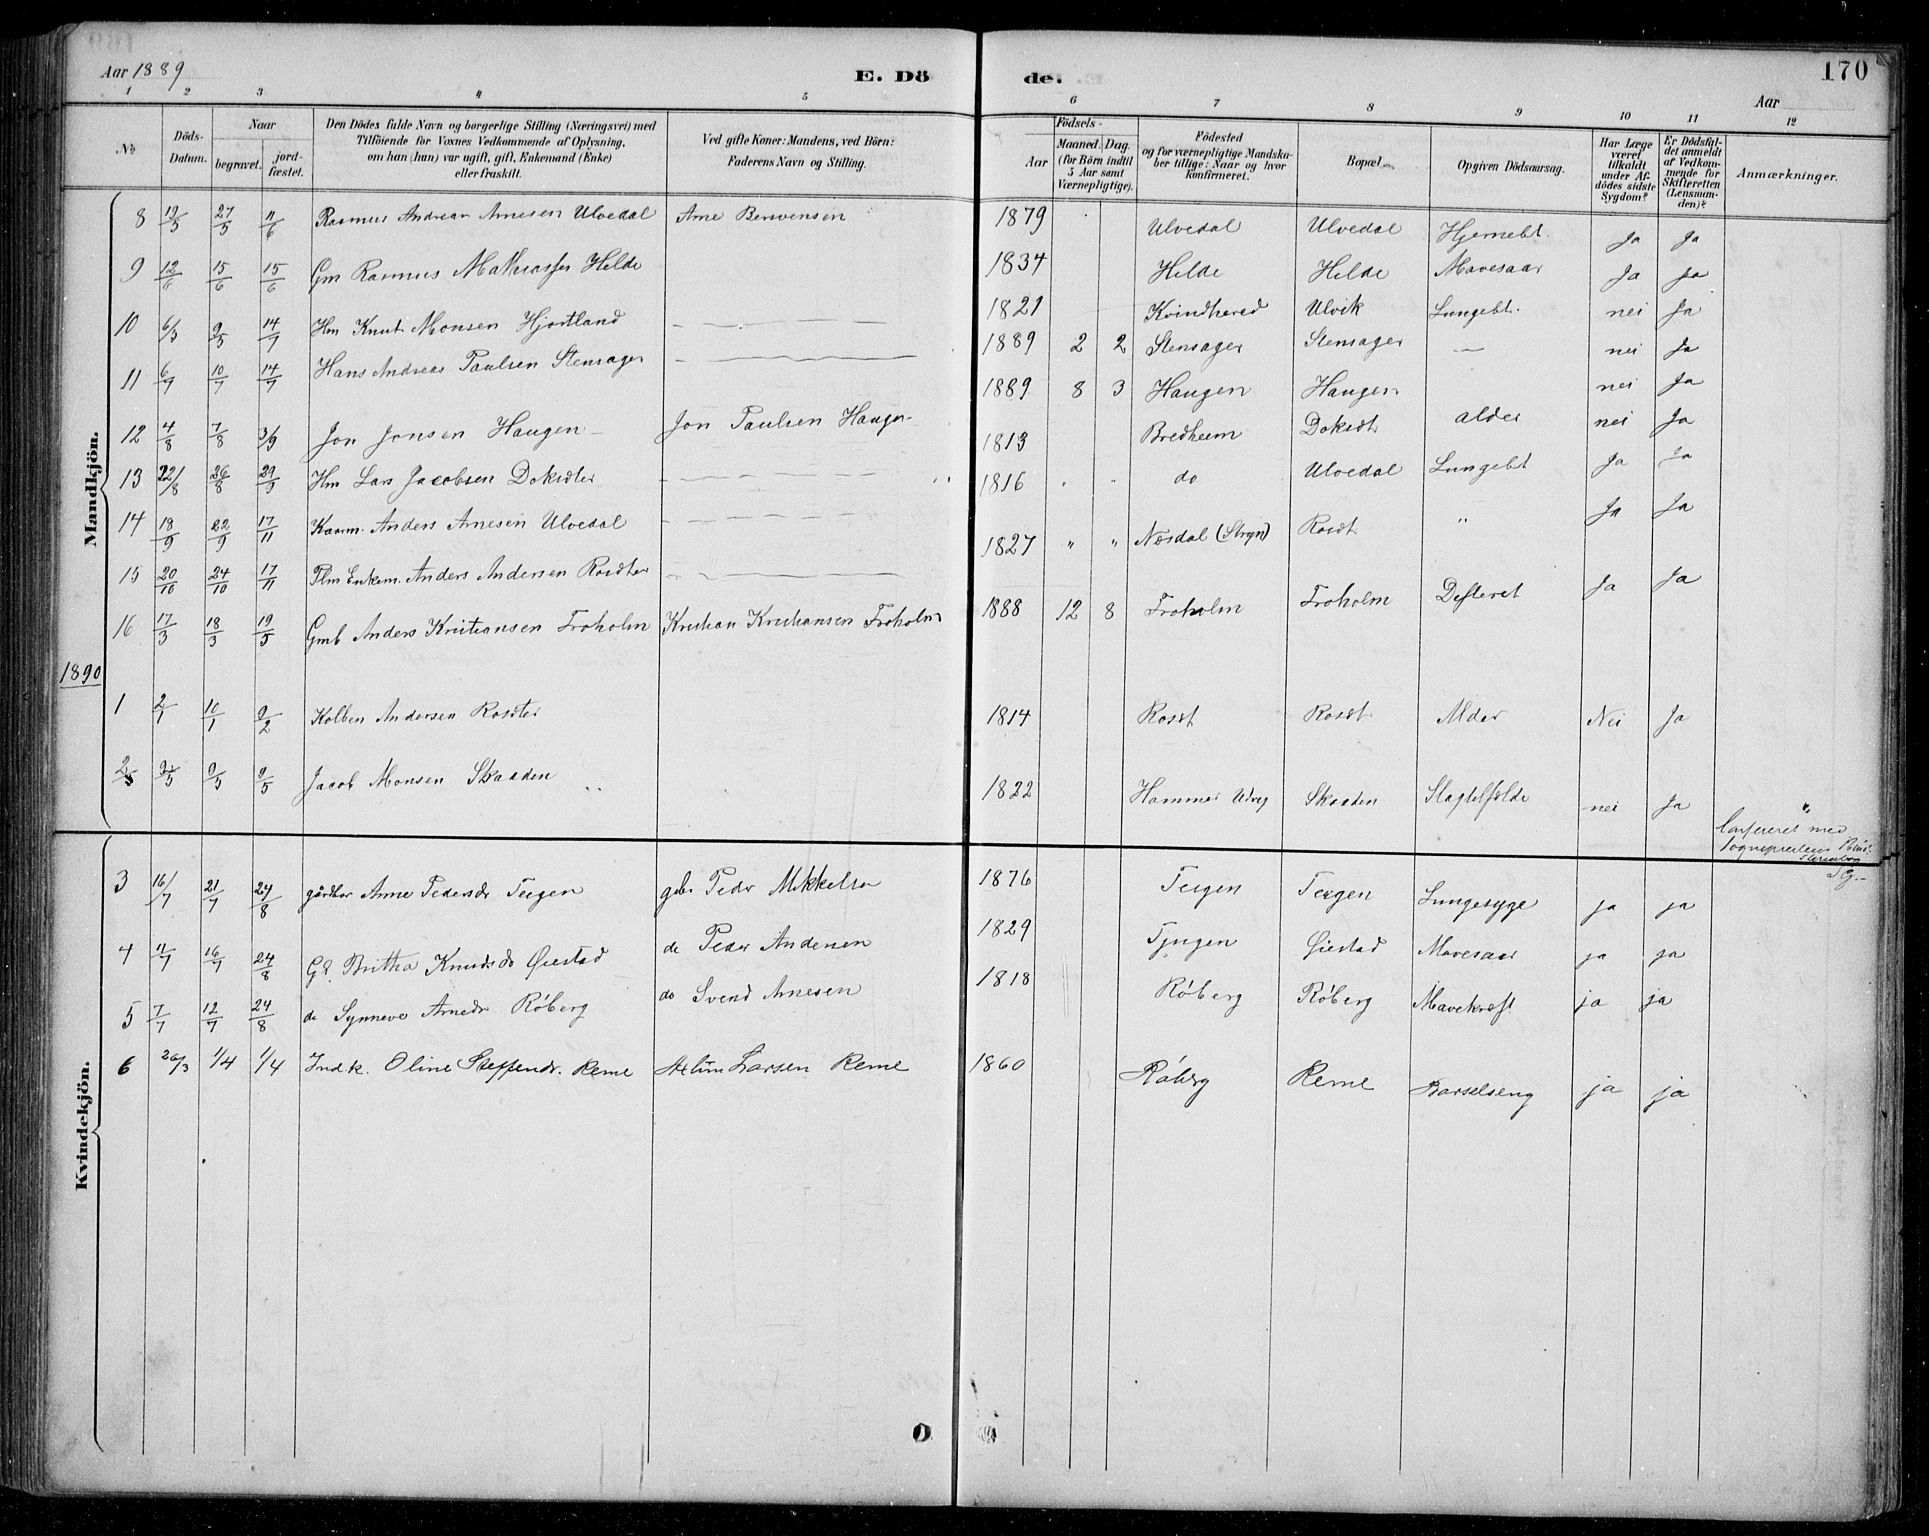 Aar 1889
E. Dö
de.
170
Aar
1 2 3 4 5 6 7 8 9 10 11 12
No
Döds-Datum.
Naar
begravet.
jord-fæstet.
Den Dödes fulde Navn og borgerlige Stilling (Næringsvei) med
Tilföiende for Voxnes Vedkommende af Oplysning,
om han (hun) var ugift, gift, Enkemand (Enke)
eller fraskilt.
Ved gifte Koner: Mandens, ved Börn:
Faderens Navn og Stilling.
Födsels-
Aar
Maaned. Dag.
(for Börn indtil
5 Aar samt
Værnepligtige).
Födested
og for værnepligtige Mandska-
ber tillige: Naar og hvor
konfirmeret.
Bopæl.
Opgiven Dödsaarsag.
Har Læge
været
tilkaldt
under Af-
dödes sidste
Sygdom?
Er Dödsfal-
det anmeldt
af Vedkom-
mende for
Skifteretten
(Lensman-
den)?
Anmærkninger.
Mandkjön.
8 19/5 27/5 11/6 Rasmus Andreas Arnesen Ulvedal Arne 1879 Ulvedal Ulvedal Hjernebt. Ja Ja
9 12/6 15/6 15/6 Gm Rasmus Helde 1834 Helde Helde Mavesaar Ja Ja
10 6/5 9/5 14/7 Hm Knut Monsen Hjortland 1821 Kvindhered Ulvik Lungebt. nei Ja
11 6/7 10/7 14/7 Hans Andreas Paulsen Stensager 1889 2 2 Stensager Stensager — nei Ja
12 4/8 7/8 3/9 Jon Jonsen Haugen Jon Paulsen Haugen 1889 8 3 Haugen Haugen nei Ja
13 22/8 26/8 29/9 Hm Lars Jacobsen Dokseter 1813 Bredheim Dokset alder nei Ja
14 18/9 22/9 17/11 Kaarm. Anders Arnesen Ulvedal 1816 do Ulvedal Lungebt Ja Ja
15 20/10 24/10 17/11 Flm Enkem. Anders Andersen Rosdter 1827 " " Nesdal (Stryn) Rosdt " Ja Ja
16 17/3 18/3 19/5 Gmb Anders Kristiansen Froholm Kristian Kristiansen Froholm 1888 12 8 Froholm Froholm Difteret Ja Ja
1890
1 2/1 10/1 9/2 Kolben Andersen Rosdter 1814 Rosdt Rosdt Alder Nei Ja
2 9/5 9/5 Jacob Monsen Skaaden 1822 Hammer Skaaden nei Ja
Confereret med
Kvindekjön.
3 16/7 21/7 24/8 Anne Pedersdr Teigen Peder Mikkelsen 1876 Teigen Teigen Lungesyge ja ja
4 11/7 16/7 24/8 Britha Knudsdr Øiestad do Peder Andersen 1829 Tjugen Øiestad Mavesaar ja ja
5 7/7 12/7 24/8 do Synneve Arnedr Röberg do Svend Arnesen 1818 Röberg Röberg Mavekræft ja ja
6 26/3 1/4 1/4 Indk. Oline Steffendr. Reme Larsen Reme 1860 Röberg Reme Barselseng ja ja